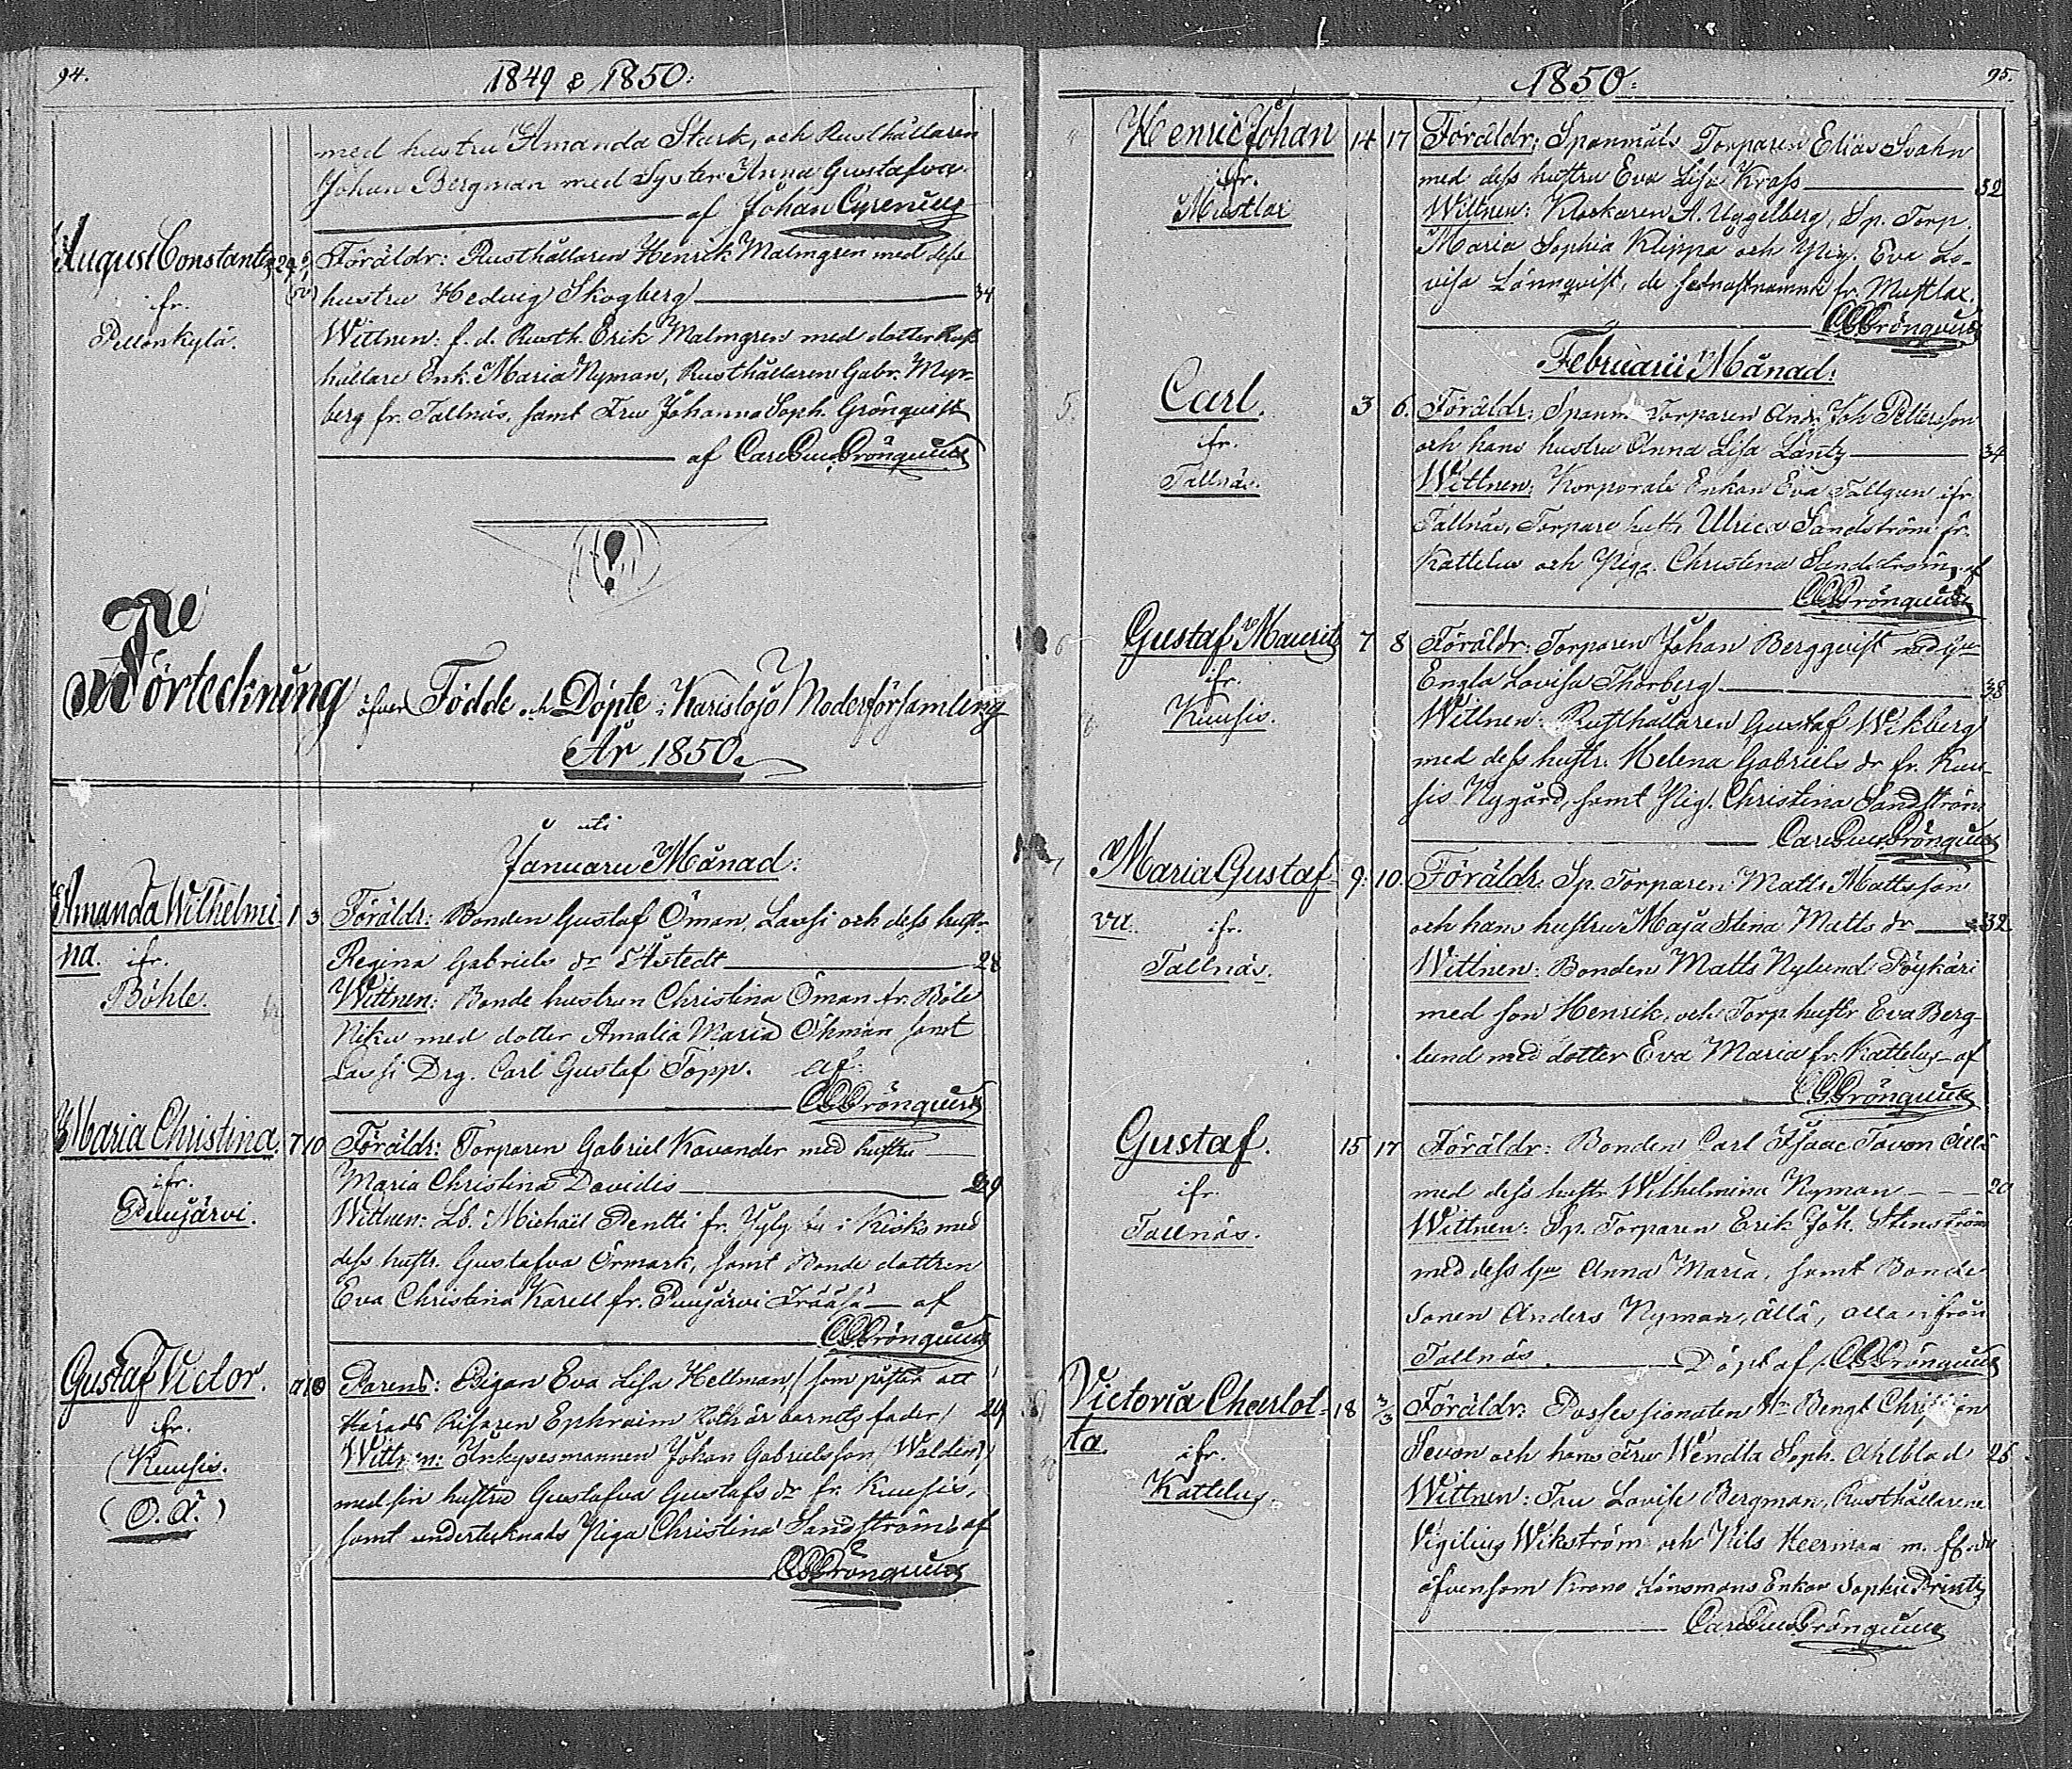 94.
1849 & 1850.
med hustru Amanda Stark, och Rusthållaren
Johan Bergman med Syster Anna Gustafva
af Johan Cyrenius
August Constantin 29 6/1 Föräldr: Rusthållaren Henrik Malmgren med dess
ifr. (50) hustru Hedvig Skogberg 34
Pellonkylä. Wittnen: f. d. Rusth. Erik Malmgren med dotter Rust
hållare Enk. Maria Nyman, Rusthållaren Gabr. Myr-
berg fr. Tallnäs, samt Fru Johanna Soph. Grönquist
af Carl Gus. Grönquist
Förteckning öfver Födde och Döpte i Karislojo Moderförsamling
År 1850.
uti
Januarii Månad:
Amanda Wilhelmi 1 3 Föräldr: Bonden Gustaf Öman, Lassi och dess hustr.
na. ifr. Regina Gabriels dr Åstedt 28
Böhle. Wittnen: Bonde hustrun Christina Öman fr. Böle
Niku med dotter Amalia Maria Öhman samt
Lassi Drg. Carl Gustaf Topp. af
CGGrönquist
Maria Christina. 7 10 Föräldr: Torparen Gabriel Kavander med hustru
ifr. Maria Christina Davidis 29
Puujärvi. Wittnen: Lb. Michaël Pentti fr. i Kisko med
dess hustr. Gustafva Örmark, samt Bonde dottren
Eva Christina Karell fr. Puujärvi af
CGGrönquist
Gustaf Victor. 10 Parens: Pigan Eva Lisa Hellman, (som påstår att
ifr. Härads Ephraim Roth är barnets fader) 29
Kuusis. Wittnen: Inhysesmannen Johan Gabrielsson (Walden)
(O. Ä.) med sin hustru Gustafva Gustafs dr fr. Kuusis,
samt undertecknads Piga Christina Sandström, af
CGGrönquist
1850. 95.
Henric Johan 14 17 Föräldr: Spanmåls Torparen Elias Svahn
ifr. med dess hustru Eva Lisa Krass 32
Mustlax Wittnen: Klockaren A. Uggelberg, Sp. Torp.
Maria Sophia Klippa och Pig. Eva Lo-
visa Lönnqvist, de sednastnamnde fr. Mustlax.
CGGrönquist
Februarii Månad:
5. Carl. 3 6. Föräldr: Spanm. Torparen And. Joh Pettersson
ifr. och hans hustru Anna Lisa Lantz 34
Tallnäs. Wittnen: Korporals Enkan Eva Tallgren ifr.
Tallnäs, Torpare hustr. Ulrica Sandström fr.
Kattelus och Piga. Christina Sandström, af
CGGrönquist
6 Gustaf Maurits 7 8 Föräldr: Torparen Johan Bergqvist med Hu
ifr. Engla Lovisa Thorberg 38
Kuusis. Wittnen: Rusthållaren Gustaf Wikberg
med dess hustr. Helena Gabriels dr fr. Kuu-
sis Nygård, samt Pig. Christina Sandström
Carl Gus. Grönquist
7 Maria Gustaf- 9. 10. Föräldr: Sp. Torparen Matts Mattsson
va. ifr. och hans hustru Maja Stena Matts dr 32
Tallnäs. Wittnen: Bonden Matts Nylund Pöykäri
med son Henrik, och Torp hustr Eva Berg-
lund med dotter Eva Maria fr. Kattelus af
CGGrönquist
Gustaf. 15 17 Föräldr: Bonden Carl Isaac Tavon Ällä
ifr. med dess hustr Wilhelmina Nyman 20
Tallnäs. Wittnen: Sp. Torparen Erik Joh. Stenström
med dess Hu Anna Maria, samt Bonde
sonen Anders Nyman, ällä, alla ifrån
Tallnäs. Döpt af CGGrönquist
Victoria Charlot- 18 3/3 Föräldr: Possessionaten Hr Bengt Christian
ta. ifr. Sevon och hans Fru Wendla Soph. Ahlblad 25
Kattelus. Wittnen: Fru Lovise Bergman, Rusthållarene
Vigilius Wikström och Nils Heerman m.
äfvensom Krono Länsmans Enkan Sophie Printz
Carl Gus. Grönquist